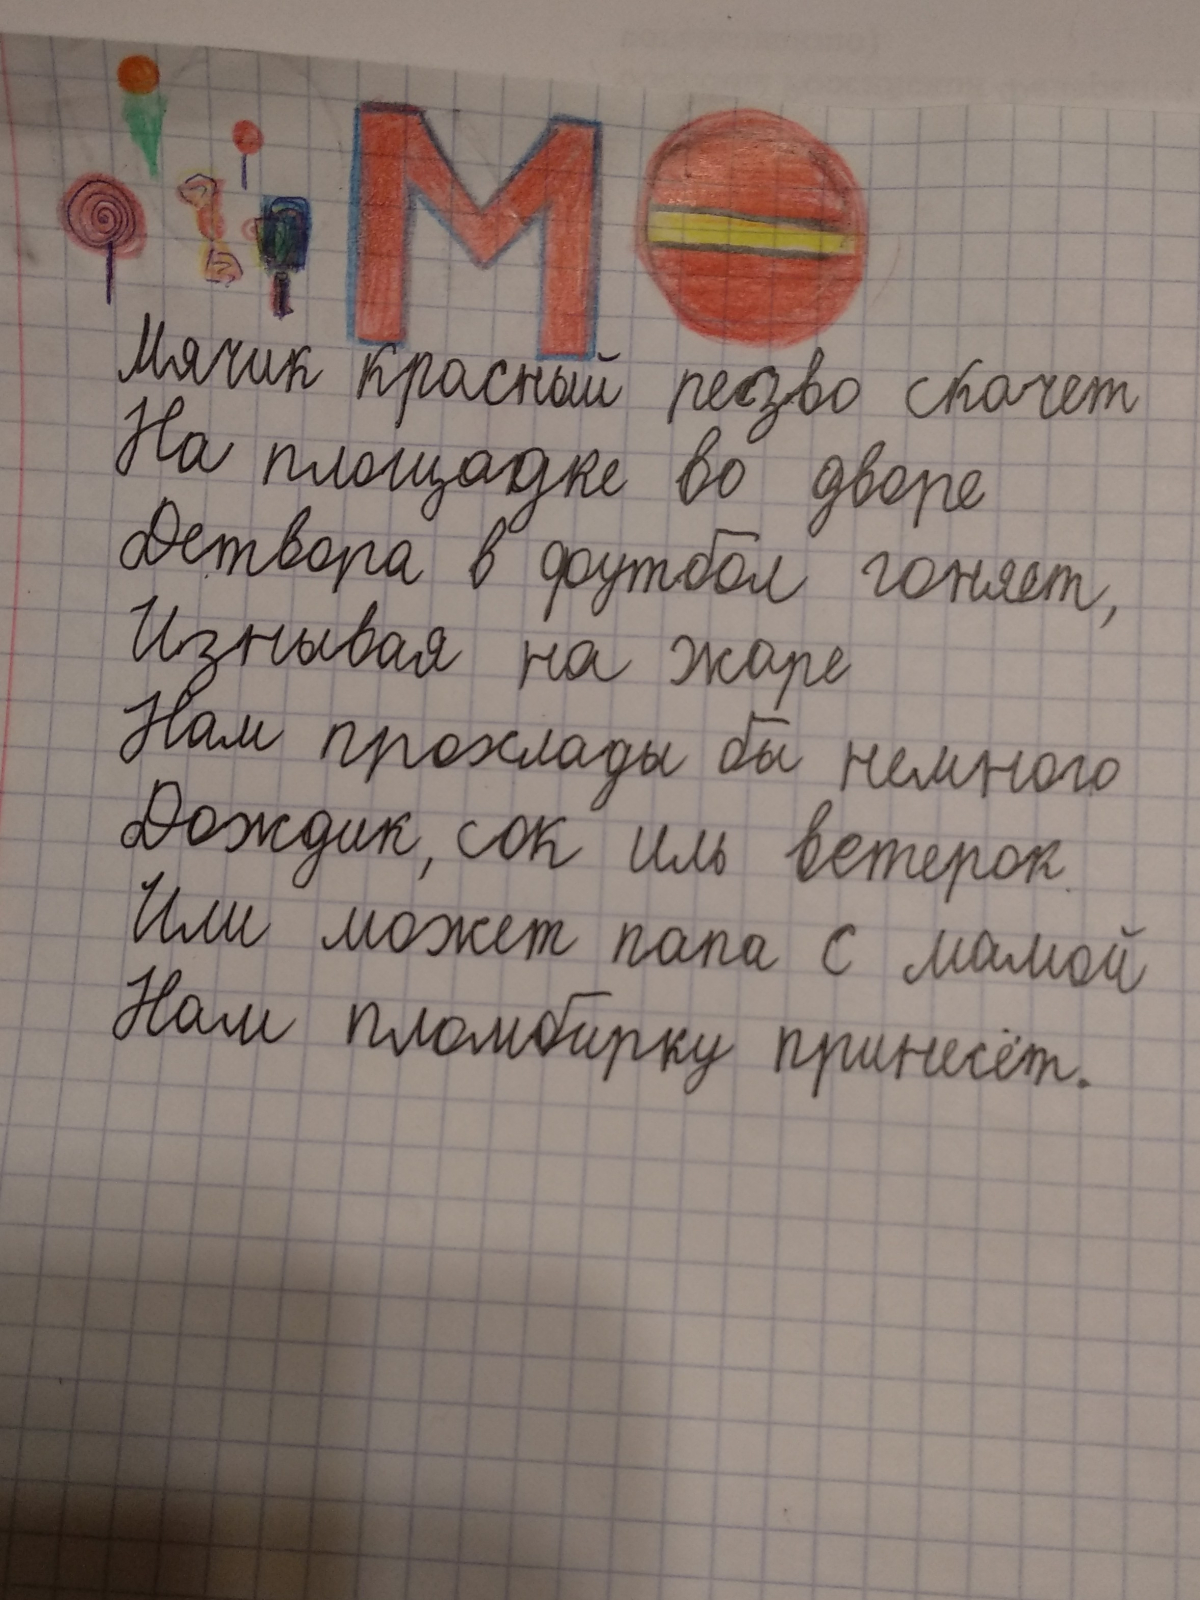 М
Мячик красный резво скачет
На площадке во дворе
Детвора в футбол гоняет,
Изнывая на жаре
Нам прохлады бы немного
Дождик, сок иль ветерок
Или может папа с мамой
Нам пломбирку принесёт.